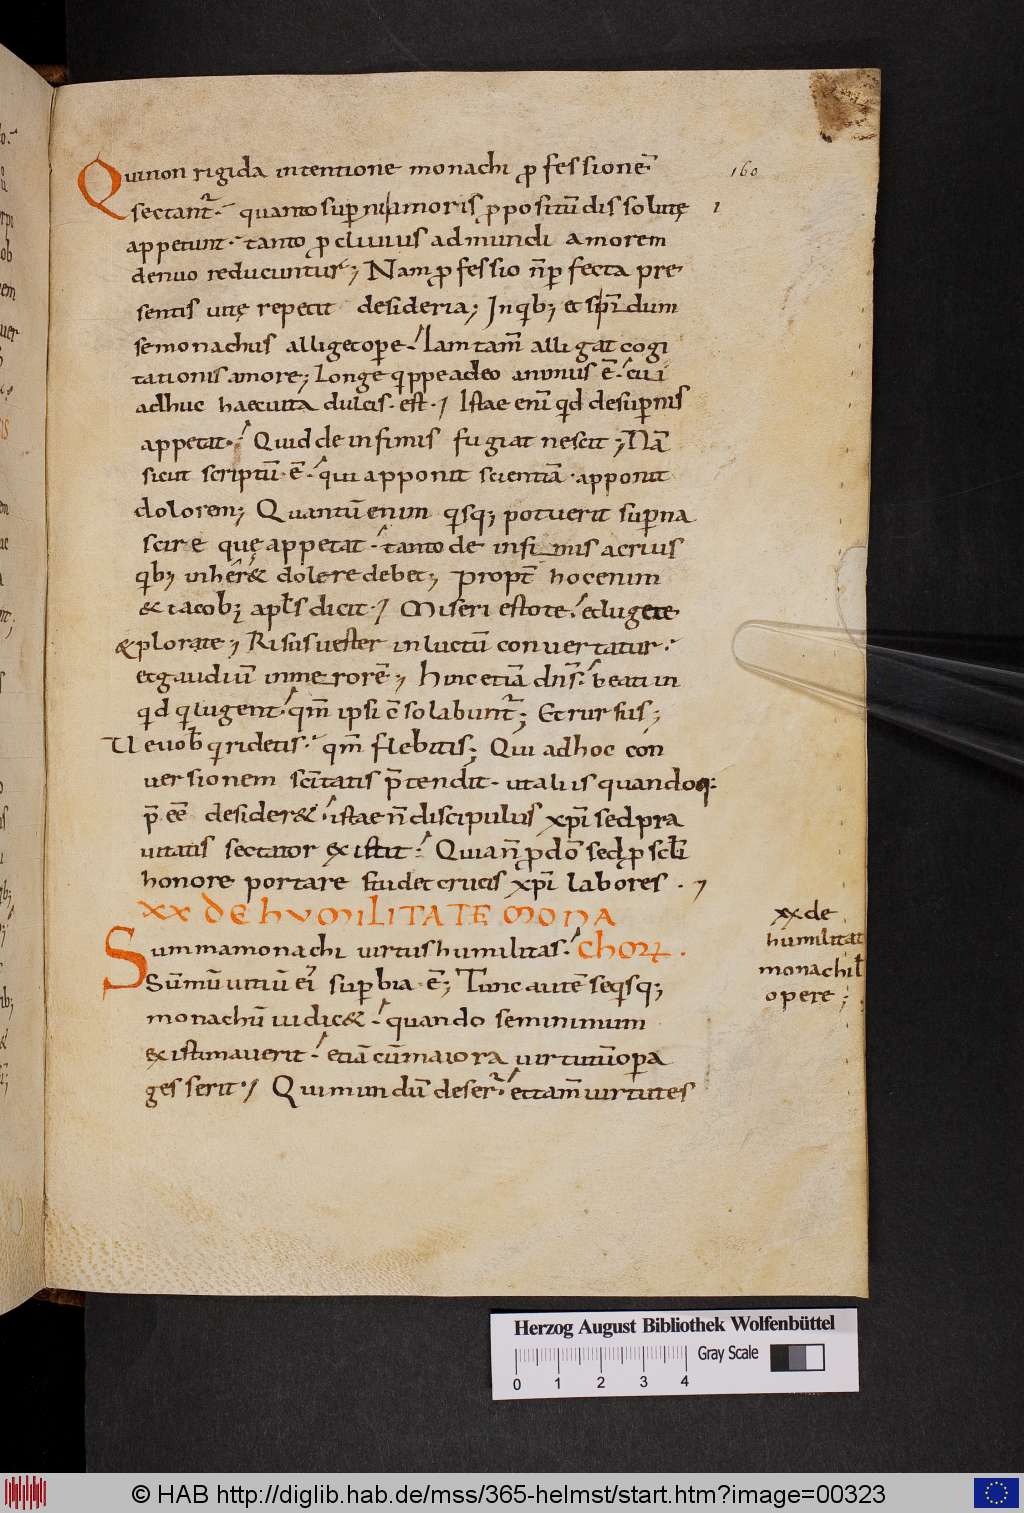 Qui non rigida intentione monachi ꝓfessionē
160
sectant᷑. quanto suꝑni amoris ꝓpositū dissolutę
1
appetunt. tanto ꝓclivius ad mundi amorem
denuo reducuntur; Nam ꝓfessio nꝑfecta pre
sentis uitę repetit desideria; In qͥb; et sp̄i dum
se monachus alliget opere. Iam tam̄ alligat cogi
tationis amore; Longe qͥppe a deo animus ē. cui
adhuc haec uita dulcis. est. Istae enī qͥd de suꝑnis
appetit. Quid de infimis fugiat nescit; Nā
sicut scriptū ē. qui apponit scientiā. apponit
dolorem; Quantū enim qͥsq; potuerit suꝑna
scire quę appetat. tanto de infimis acrius
qͥb; inher& dolere debet; Propt̄ hoc enim
& iacob; apl̄s dicit. Miseri estote. et lugete
& plorate; Risus uester in luctū conuertatur.
et gaudiū in merorē; Hinc etiā dn̄s. beati in
qͥd qͥ lugent. qm̄ ipsi c̄solabunt᷑; Et rursus;
Ue uob̄ qͥ ridetis. qm̄ flebitis; Qui ad hoc con
uersionem sc̄itatis p̄tendit. ut aliis quandoq:
p̄ eē desider&. istae n̄ discipulus xp̄i sed pra
uitatis sectator existit. Quia n̄ ꝓ dō sed ꝓ scl̄i
honore portare studet crucis xp̄i labores.
XX DE HUMILITATE MONA
xx de
humilitat
Summa monachi uirtus humilitas. CHORꝜ.
monachil̄
Sūmū uitiū eī suꝑbia ē; Tunc autē se qͥsq;
opere;
monachū iudic&. quando se minimum
existimauerit. etiā cū maiora uirtutū oꝑa
gesserit. Qui mundū deser᷑. et tam̄ uirtutes
Herzog August Bibliothek Wolfenbüttel
Gray Scale
0 1 2 3 4
© HAB http://diglib.hab.de/mss/365-helmst/start.htm?image=00323